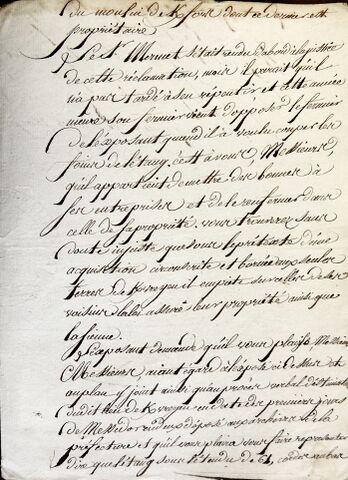 du moulin de K/ dont ce dernier est
propriétaire.
Le Sr Mermet s'était rendu d'abord à la justice
de cette réclamation, mais il paroit qu'il
n'a pas tardé à s'en repentir et cette année
meme son fermier vient d'opposer le fermier
de l'exposant quand il a voulu couper les
foins de l'étang, c'est à vous, Messieurs,
qu'il appartient de mettre des bornes à
ses entreprises et de le renfermer dans
celle de sa propriété. vous trouverez sans
doute injuste que sous le prétexte d'une
acquisition circonscrite et bornée aux seules
terres de il empiète sur celles de ses
voisins la loi assure leur propriété ainsi que
la sienne.
L'exposant demande qu'il vous plaise, Messieurs
Messieurs aiant égard à l'exposé ci dessus et
au plan y joint ainsi qu'au procès verbal d'estimation
dudit lieu de en date des premiers jours
de Messidor an déposé aux archives de la
préfecture et qu'il vous plaira vous faire representer
dire que l'étang sous l'étendue de 61, cordes